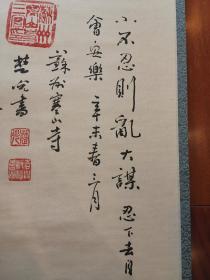 小不忍則亂大謀 忍下去自
會安樂 辛未春三月
蘇州寒山寺
楚光書